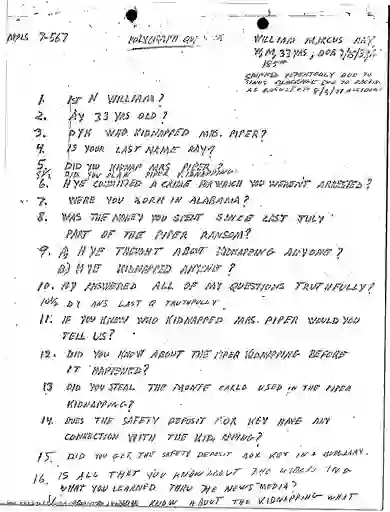 MPLS 7-567
POLYGRAPH
WILLIAM MARCUS RAY,
33 YRS, DOB
1. IS N WILLIAM?
2. AY 33 YRS OLD?
3. DYK WHO KIDNAPPED MRS. PIPER?
4. IS YOUR LAST NAME RAY?
5. DID YOU KIDNAP MRS PIPER?
DID YOU PLAN PIPER KIDNAPPING
6. HYE COMMITTED A CRIME FOR WHICH YOU WEREN'T ARRESTED?
7. WERE YOU BORN IN ALABAMA?
8. WAS THE MONEY YOU SPENT SINCE LAST JULY
PART OF THE PIPER RANSOM?
9. A) HYE THOUGHT ABOUT KIDNAPPING ANYONE?
B) HYE KIDNAPPED ANYONE?
10. HY ANSWERED ALL OF MY QUESTIONS TRUTHFULLY?
DY ANS LAST Q TRUTHFULLY
11. IF YOU KNEW WHO KIDNAPPED MRS. PIPER WOULD YOU
TELL US?
12. DID YOU KNOW ABOUT THE PIPER KIDNAPPING BEFORE
IT HAPPENED?
13 DID YOU STEAL THE MONTE CARLO USED IN THE PIPER
KIDNAPPING?
14. DOES THE SAFETY DEPOSIT BOX KEY HAVE ANY
CONNECTION WITH THE KIDNAPPING?
15. DID YOU GET THE SAFETY DEPOSIT BOX KEY IN A BURGLARY.
16. IS ALL THAT YOU KNOW ABOUT THE
WHAT YOU LEARNED THRU THE NEWS MEDIA?
KNOW ABOUT THE KIDNAPPING WHAT